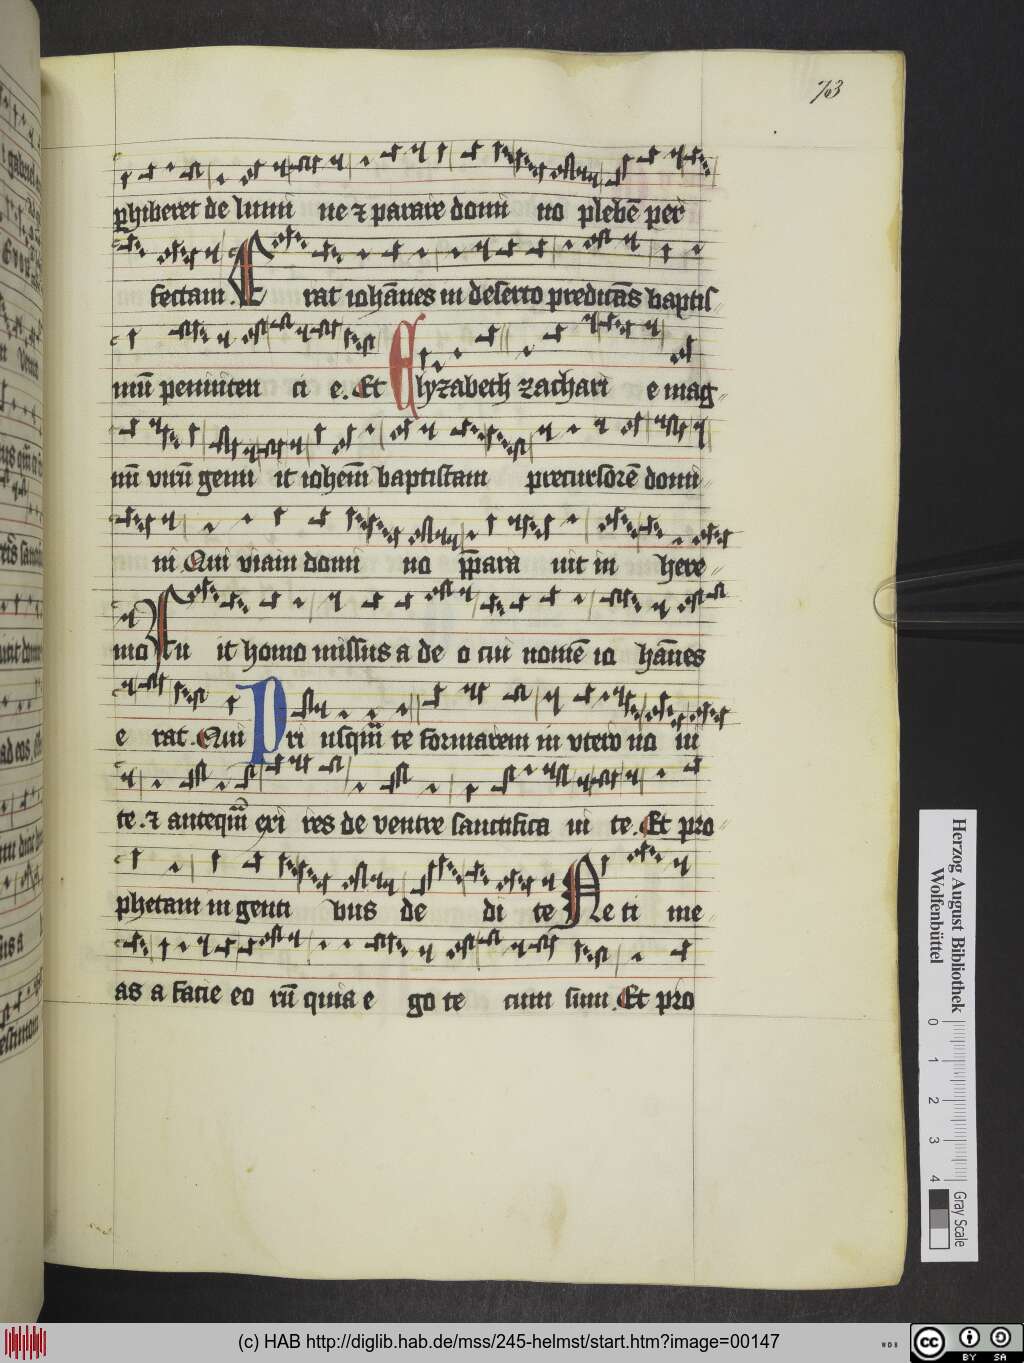 73
ꝑhiberet de lumi ne ⁊ parare domi no plebē per
fectam. Erat iohānes in deserto predicās baptis
mū penniten ci e. Et Elyzabeth zachari e mag
nū virū genu it iohem̄ baptistam precursorē domi
ni Qui viam domi no p̄para uit in here
mo Fu it homo missus a de o cui nomē io hānes
e rat. Qui Pri usqm̄ te formarem in vtero no ui
te. ⁊ anteqm̄ exi res de ventre sanctifica ui te. Et pro
phetam in genti bus de di te Ne ti me
as a facie eo rū quia e go te cum sum. Et pro
Herzog August Bibliothek
Wolfenbüttel
0 1 2 3 4
Gray Scale
(c) HAB http://diglib.hab.de/mss/245-helmst/start.htm?image=00147
WDB
cc BY SA